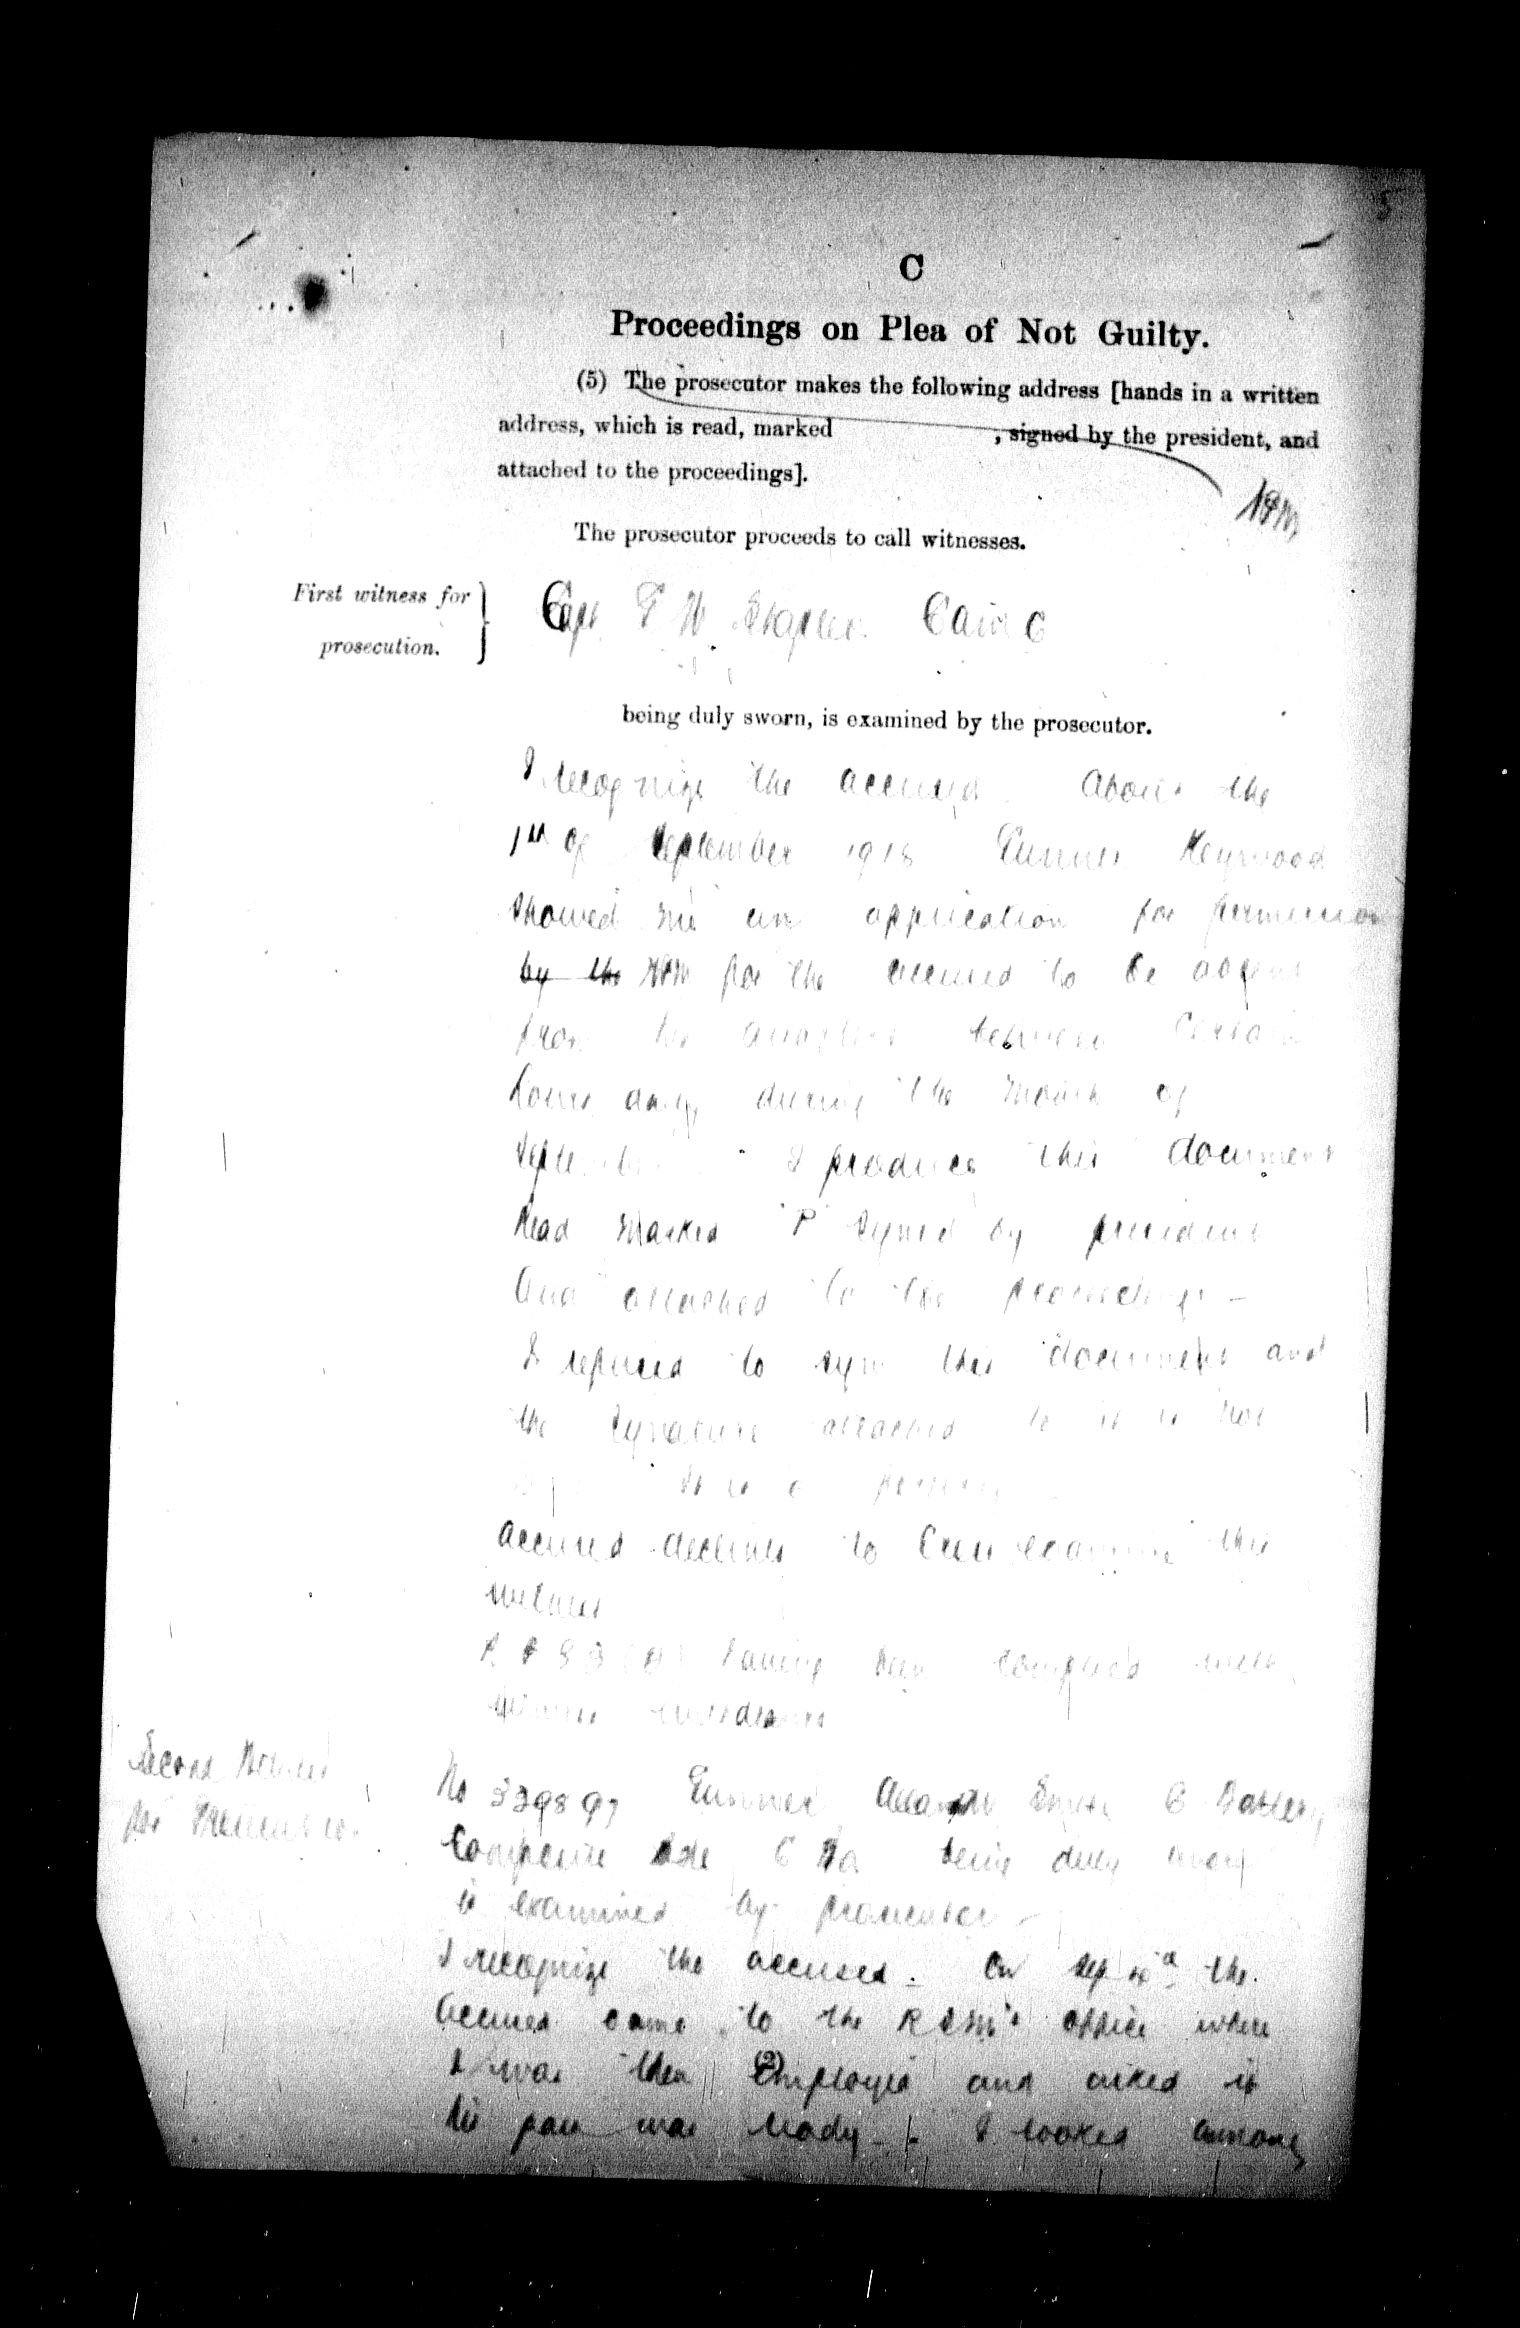 5
C
Proceedings on Plea of Not Guilty.
(5) The prosecutor makes the following address [hands in a written
address, which is read, marked , signed by the president, and
attached to the proceedings].
The prosecutor proceeds to call witnesses.
First witness for
prosecution.
Capt
being duly sworn, is examined by the prosecutor.
I recognize the accused. About the
1st of September 1918 Gunner Heywood
showed me an application for permission
by the for the accused to be absent
from his between certain
hours daily during the month of
September. I produce this document
Read marked "P" signed by president
and attached to the proceedings -
I refused to sign this document and
the signature attached to it is not
It is a
accused declines to cross examine this
witness
R P 83 (B) having been complied with
witness
Second Witness
for Prosecution
No 339897 Gunner Smith C Battery
being duly sworn
is examined by prosecutor -
I recognize the accused. On Sep the
accused came to the RSM's office where
I was then employed and asked if
his pass was ready. I looked among